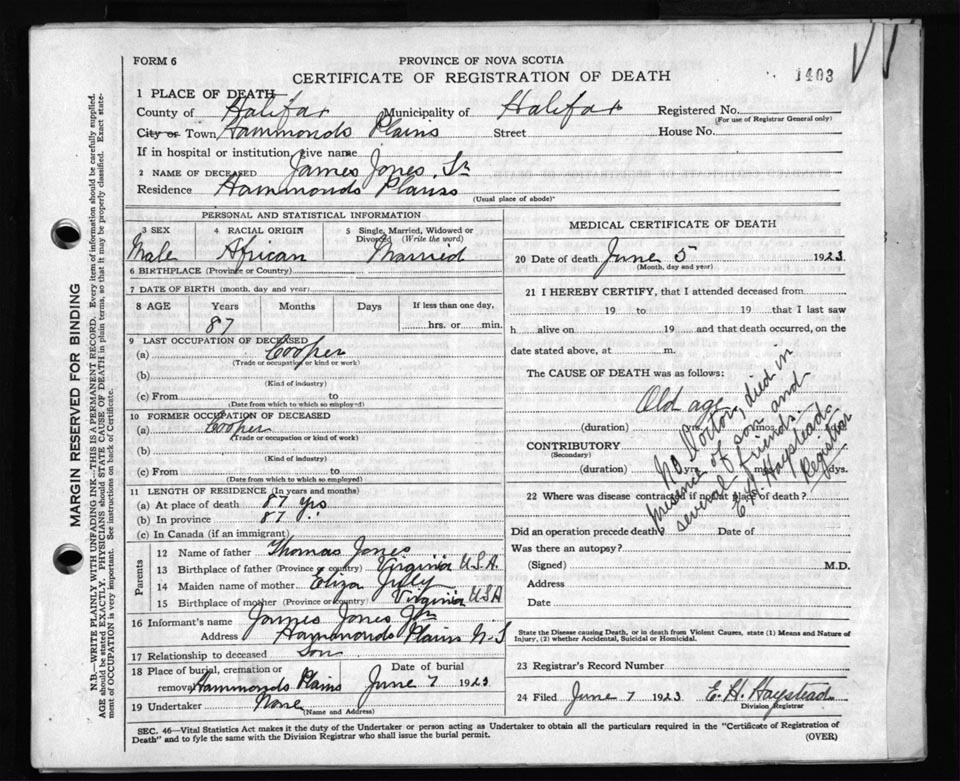 FORM 6
PROVINCE OF NOVA SCOTIA
CERTIFICATE OF REGISTRATION OF DEATH
1403
1 PLACE OF DEATH
County of Halifax Municipality of Halifax Registered No.
(For use of Registrar General only)
City or Town Hammonds Plains Street House No.
If in hospital or institution, give name
2 NAME OF DECEASED James Jones, Sr
Residence Hammonds Plains
(Usual place of abode)"
PERSONAL AND STATISTICAL INFORMATION
3 SEX 4 RACIAL ORIGIN 5 Single, Married, Widowed or Divorced (Write the word)
Male African Married
6 BIRTHPLACE (Province or Country)
7 DATE OF BIRTH (month, day and year)
8 AGE Years Months Days If less than one day,
87 hrs. or min.
9 LAST OCCUPATION OF DECEASED
(a) Cooper
(Trade or occupation or kind or work)
(b)
(Kind of industry)
(c) From to
(Date from which to which so employed)
10 FORMER OCCUPATION OF DECEASED
(a) Cooper
(Trade or occupation or kind of work)
(b)
(Kind of industry)
(c) From to
(Date from which to which so employed)
11 LENGTH OF RESIDENCE (In years and months)
(a) At place of death 87 Yrs
(b) In province 87 "
(c) In Canada (if an immigrant)
Parents
12 Name of father Thomas Jones
13 Birthplace of father (Province or country) Virginia U.S.A.
14 Maiden name of mother Eliza
15 Birthplace of mother (Province or Country) Virginia USA
16 Informant's name James Jones Jr
Address Hammonds Plains N.S
17 Relationship to deceased Son
18 Place of burial, cremation or removal Hammonds Plains Date of burial June 7 1923
19 Undertaker None
(Name and Address)
MEDICAL CERTIFICATE OF DEATH
20 Date of death June 5 1923
(Month, day and year)
21 I HEREBY CERTIFY, that I attended deceased from
19 to 19 that I last saw
h alive on 19 and that death occurred, on the
date stated above, at m.
The CAUSE OF DEATH was as follows:
Old age
(duration) yrs. mos. dys.
CONTRIBUTORY
(Secondary)
(duration) yrs. mos. dys.
No Doctor, died in
presence of son and
several friends.
E.H. Haystead
Registrar
22 Where was disease contracted if not at place of death?
Did an operation precede death? Date of
Was there an autopsy?
(Signed) M.D.
Address
Date
State the Disease causing Death, or in death from Violent Causes, state (1) Means and Nature of
Injury, (2) whether Accidental, Suicidal or Homicidal.
23 Registrar's Record Number
24 Filed June 7 1923 E. H. Haystead
Division Registrar
SEC. 46—Vital Statistics Act makes it the duty of the Undertaker or person acting as Undertaker to obtain all the particulars required in the "Certificate of Registration of
Death" and to fyle the same with the Division Registrar who shall issue the burial permit. (OVER)
MARGIN RESERVED FOR BINDING
N.B.—WRITE PLAINLY WITH UNFADING INK—THIS IS A PERMANENT RECORD. Every item of information should be carefully supplied.
AGE should be stated EXACTLY. PHYSICIANS should STATE CAUSE OF DEATH in plain terms, so that it may be properly classified. Exact state-
ment of OCCUPATION is very important. See instructions on back of Certificate.